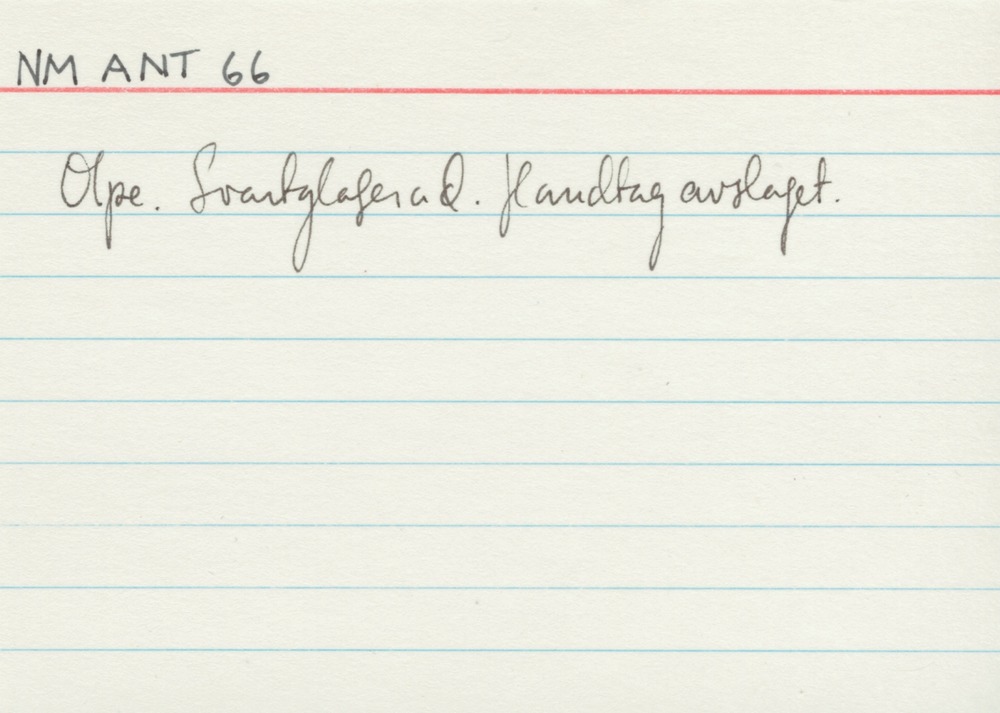 NM ANT 66
Olpe. Svartglaserad. Handtag avslaget.